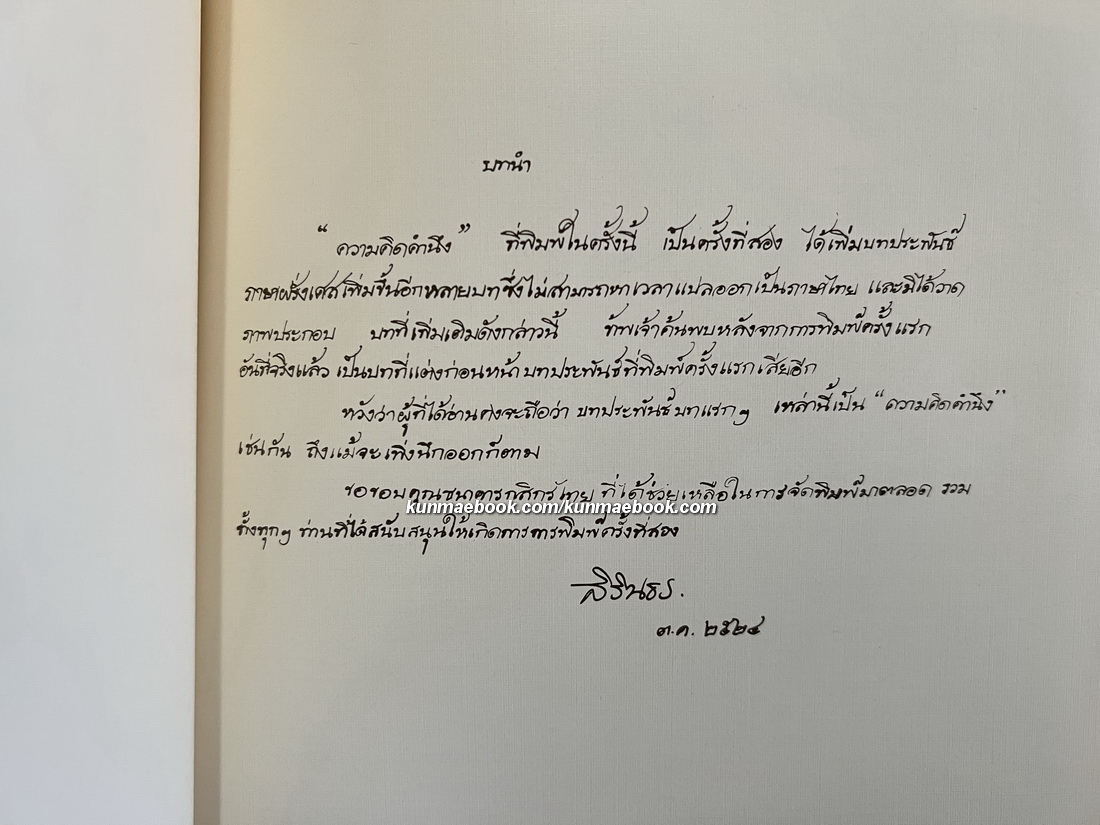 บทนำ
“ความคิดคำนึง” ที่พิมพ์ในครั้งนี้ เป็นครั้งที่สอง ได้เพิ่มบทประพันธ์
ภาษาฝรั่งเศสเพิ่มขึ้นอีกหลายบทซึ่งไม่สามารถหาเวลาแปลออกเป็นภาษาไทย และมิได้วาด
ภาพประกอบ บทที่เพิ่มเติมดังกล่าวนี้ ข้าพเจ้าค้นพบหลังจากการพิมพ์ครั้งแรก
อันที่จริงแล้ว เป็นบทที่แต่งก่อนหน้าบทประพันธ์ที่พิมพ์ครั้งแรกเสียอีก
หวังว่าผู้ที่ได้อ่านคงจะถือว่า บทประพันธ์บทแรกๆ เหล่านี้เป็น “ความคิดคำนึง”
เช่นกัน ถึงแม้จะเพิ่งนึกออกก็ตาม
ขอขอบคุณธนาคารกสิกรไทย ที่ได้ช่วยเหลือในการจัดพิมพ์มาตลอด รวม
kunmaebook.com/kunmaebook.com
ทั้งทุกๆ ท่านที่ได้สนับสนุนให้เกิดการการพิมพ์ครั้งที่สอง
สิรินธร.
ต.ค. ๒๕๒๔